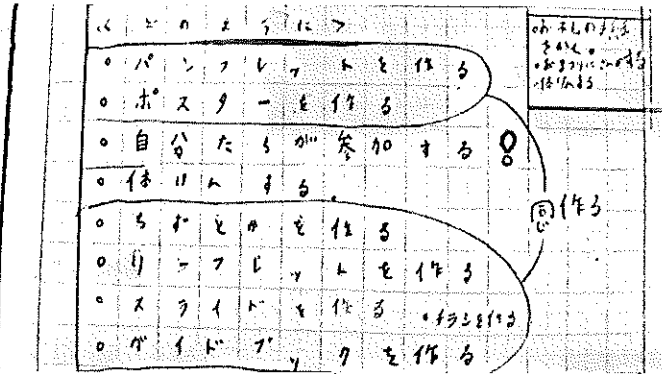 くどのように>
・パンフレットを作る
・ポスターを作る
・自分たちが参加する!
・体けんする。
・ちずとかを作る
・リーフレットを作る
・スライドを作る ・チラシを作る
・ガイドブックを作る
同じ 作る
・体けんする